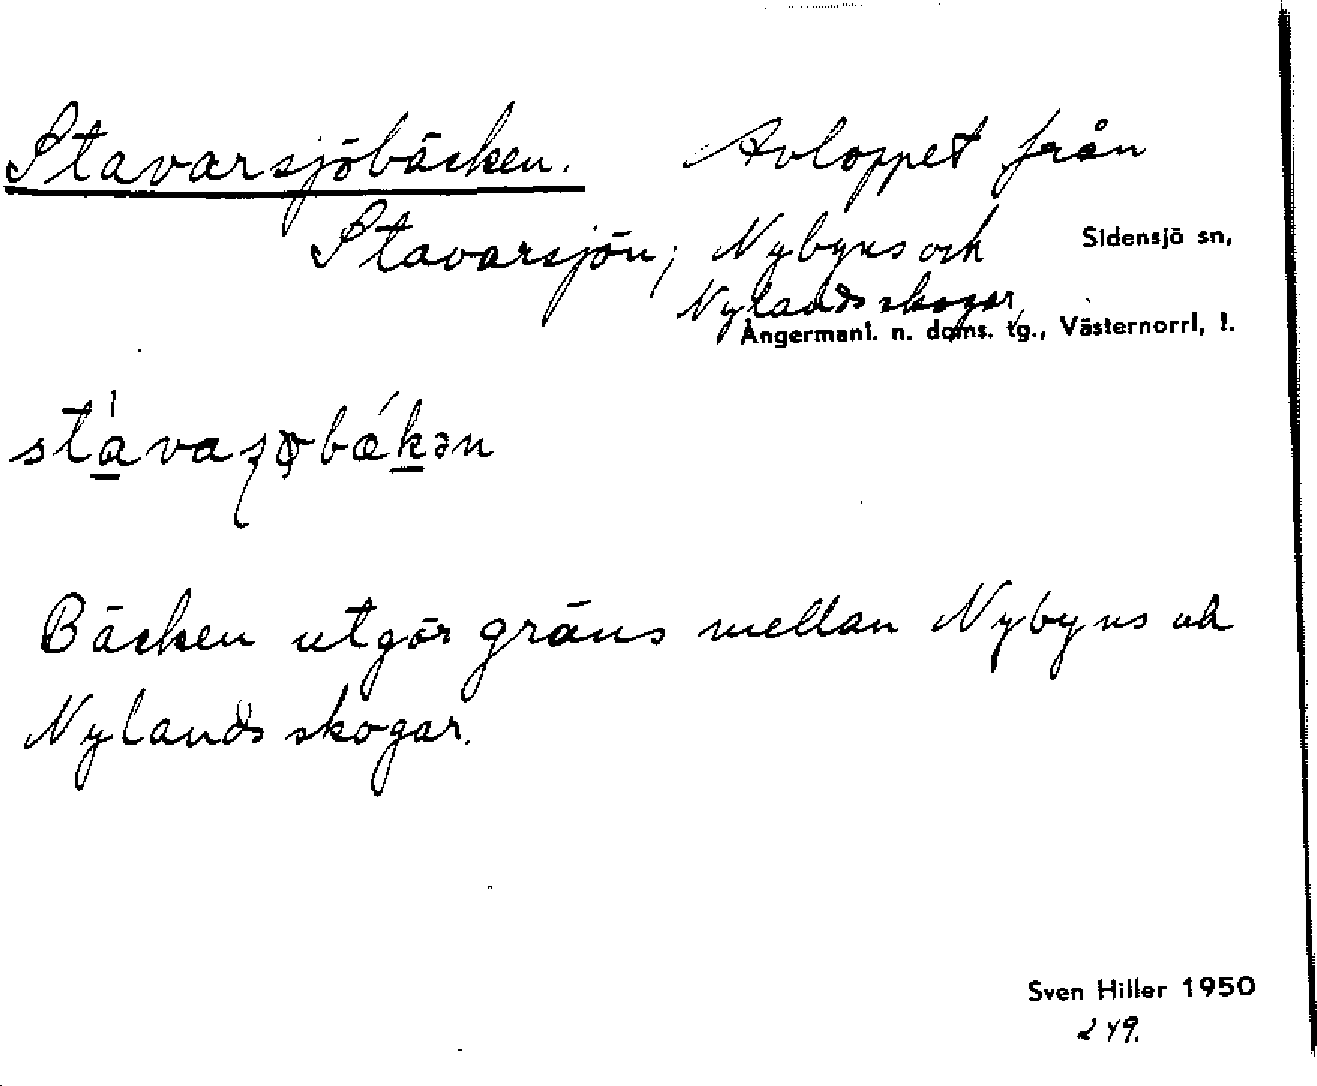 Stavarsjöbäcken. Avloppet från
Stavarsjön; Nybyns och Sidensjö sn,
Nylands skogar,
Ångermanl. n. doms. tg., Västernorrl, l.
Bäcken utgör gräns mellan Nybyns och
Nylands skogar.
Sven Hiller 1950
249.